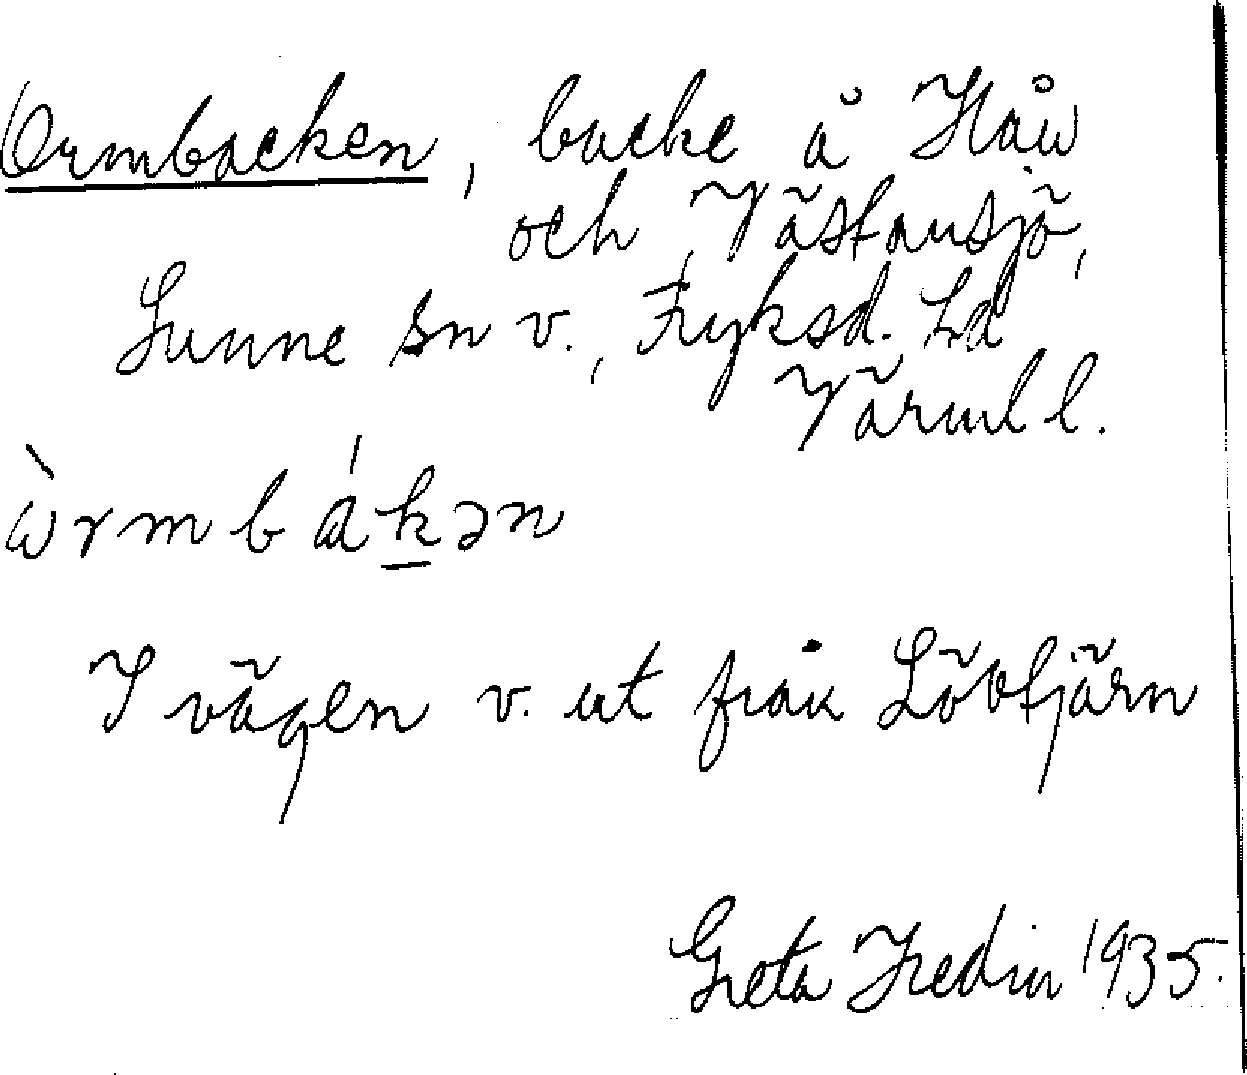 Ormbacken, backe å Hån
och Västansjö,
Sunne sn v., Fryksd. hd
Värml l.
ὼrmbákən
I vägen v. ut från Lövtjärn
Greta Hedin 1935.